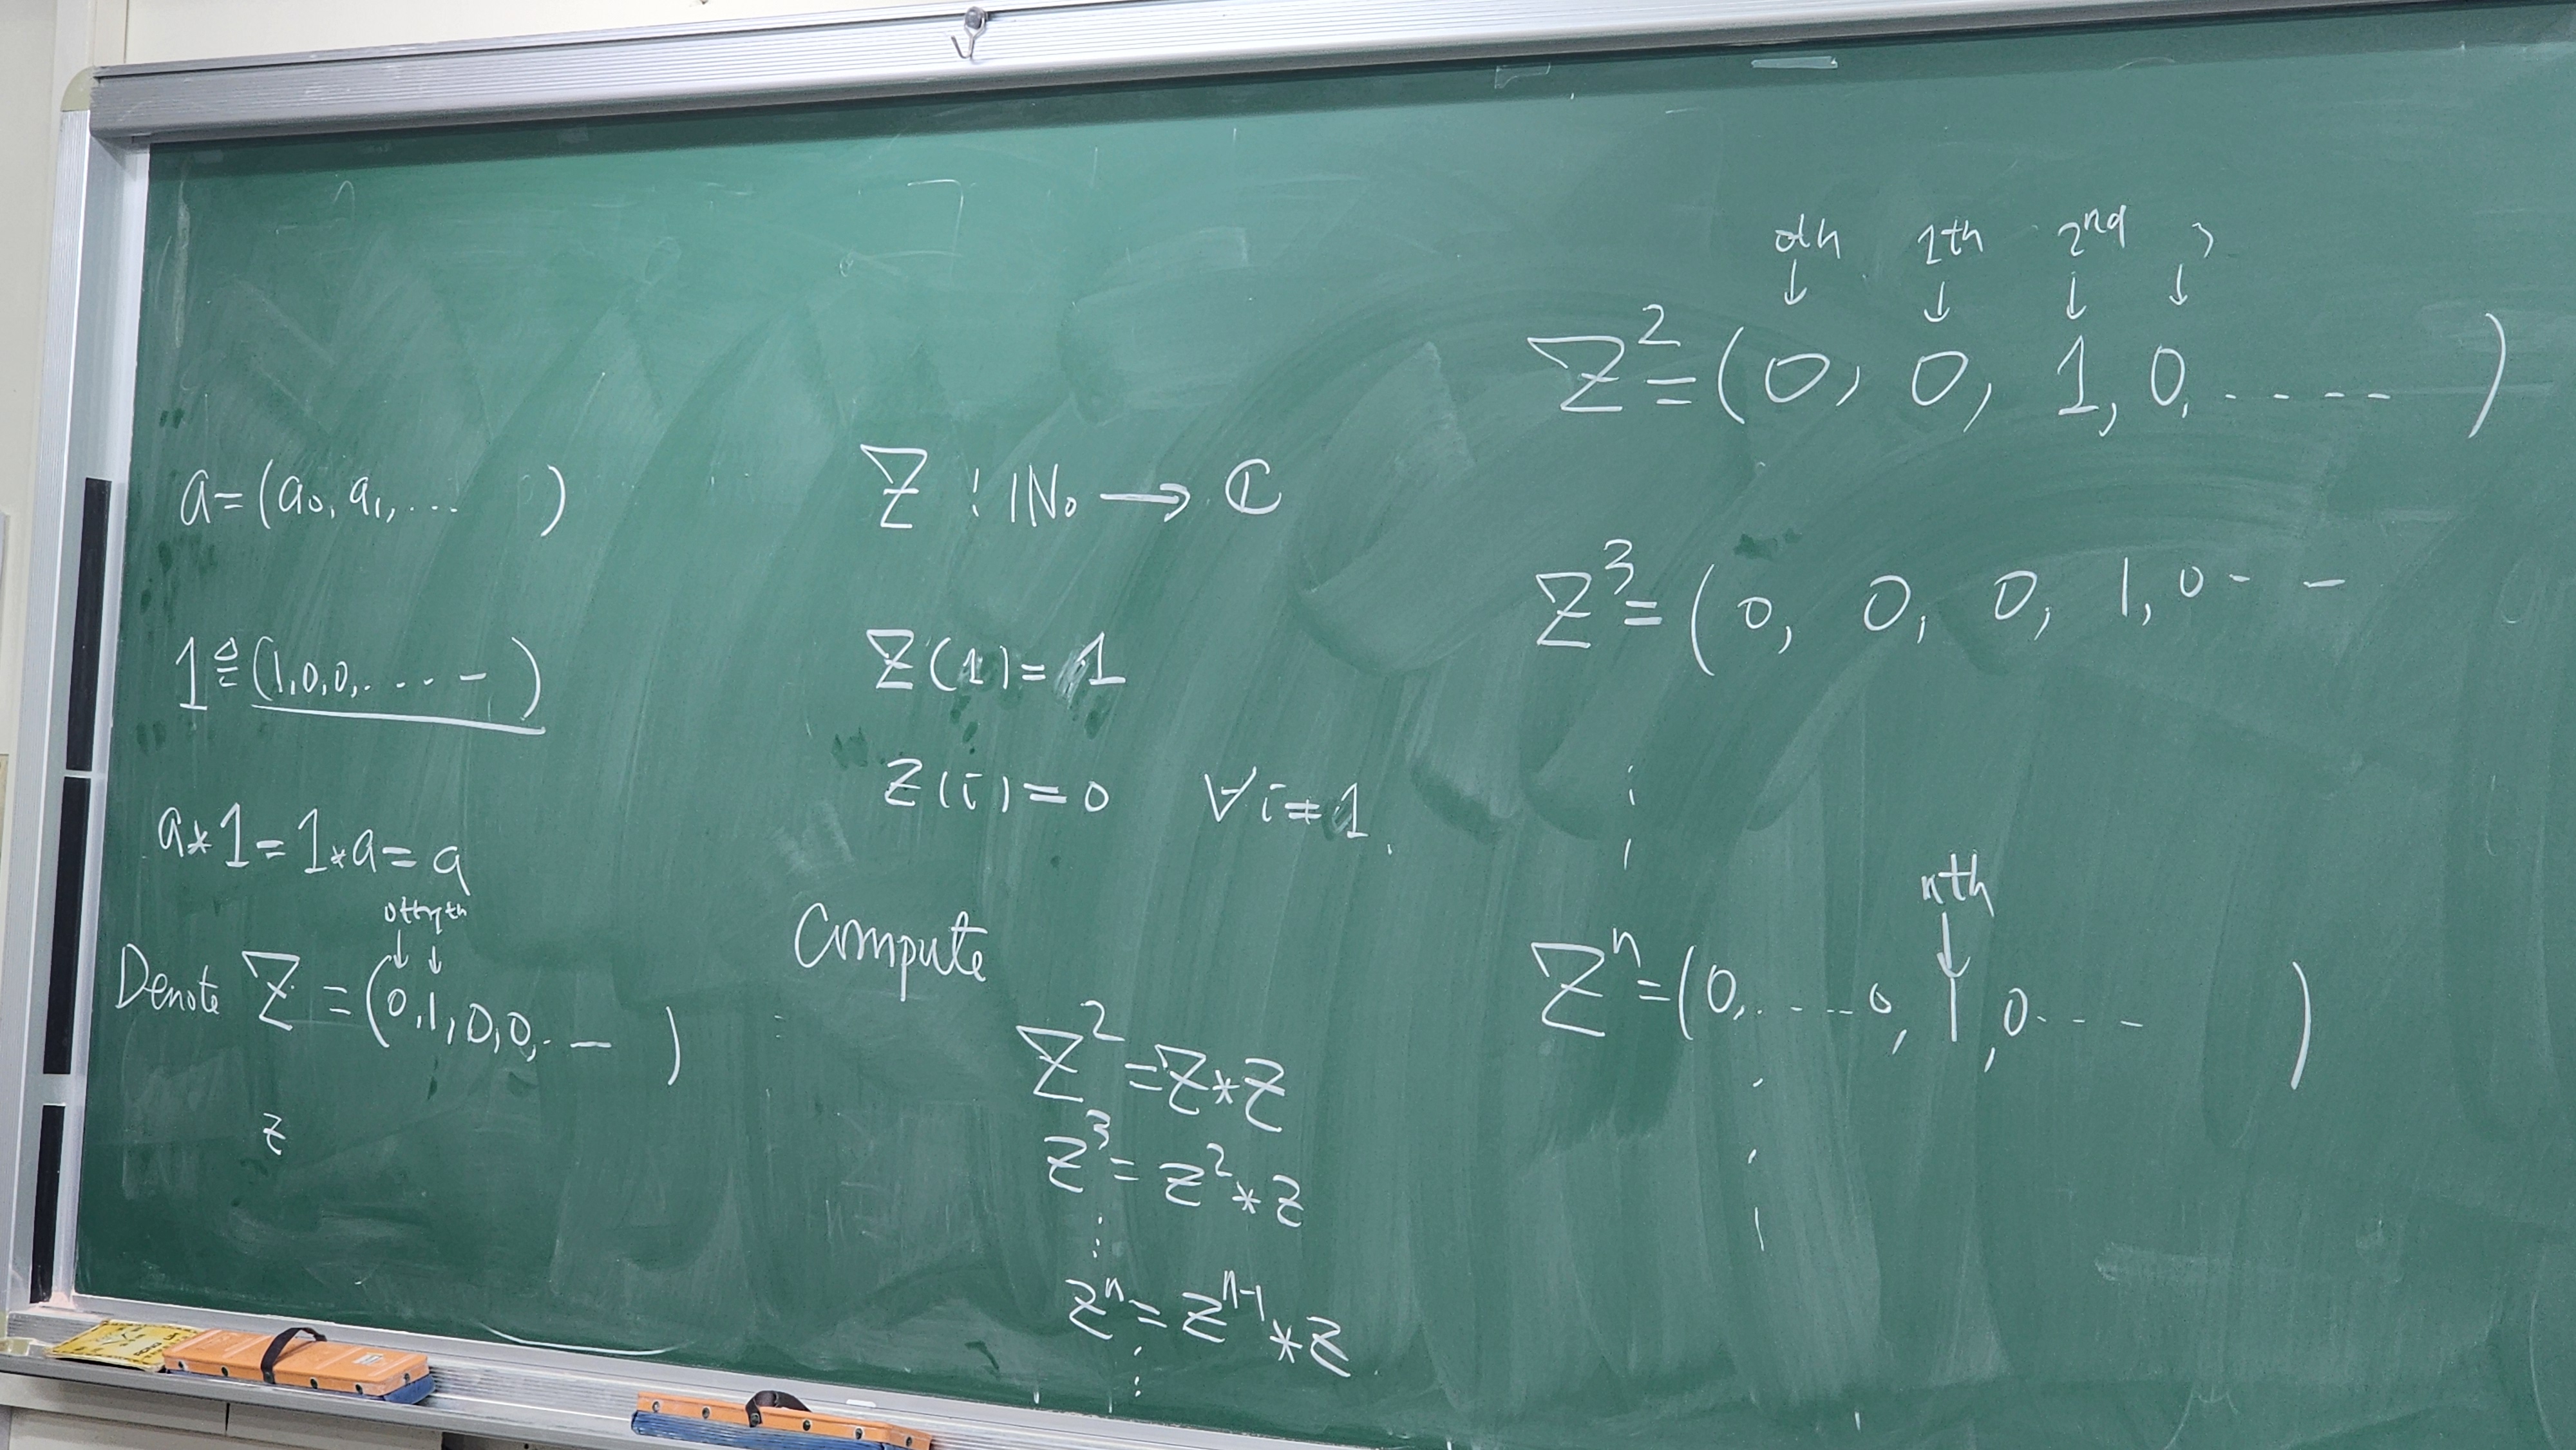 a=(a₀, a₁, ... )
1≜(1,0,0,.... - )
a*1=1*a=a
0th 1th
↓ ↓
Denote Z=(0,1,0,0,.-- )
z
Z : ℕ₀ → ℂ
Z(1)=1
Z(i)=0 ∀i≠1.
Compute
Z²=Z*Z
Z³=Z²*Z
⋮
Zⁿ=Zⁿ⁻¹*Z
⋮
0th 1th 2nd 3
↓ ↓ ↓ ↓
Z²=(0, 0, 1, 0, ----- )
Z³=(0, 0, 0, 1, 0 - -
⋮
nth
↓
Zⁿ=(0,.....0, 1, 0--- )
⋮